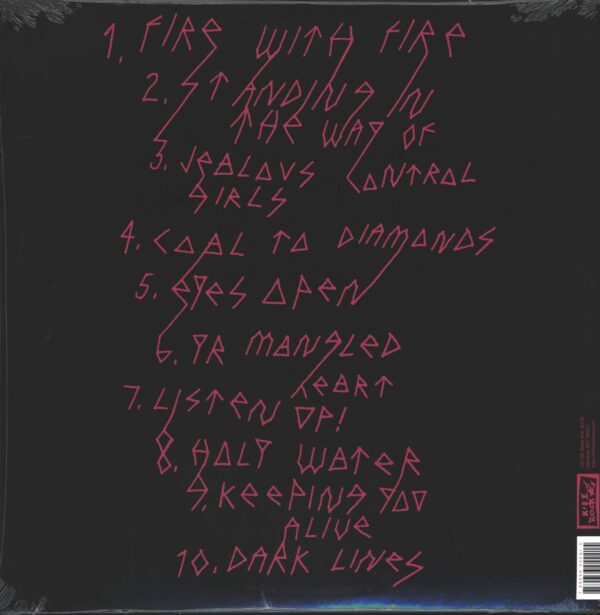 1. FIRE WITH FIRE
2. STANDING IN
THE WAY OF
CONTROL
3. JEALOUS
GIRLS
4. COAL TO DIAMONDS
5. EYES OPEN
6. YR MANGLED
HEART
7. LISTEN UP!
8. HOLY WATER
9. KEEPING YOU
ALIVE
10. DARK LINES
KILL
ROCK